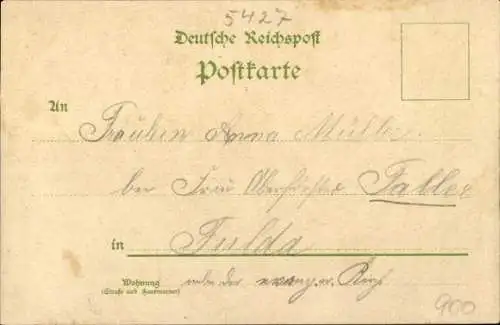 5427
Deutsche Reichspost
Postkarte
An
Fräulein Anna Müller
bei Frau Oberförster Faller
in Fulda
Wohnung neben der evang. Kirch
(Straße und Hausnummer)
900